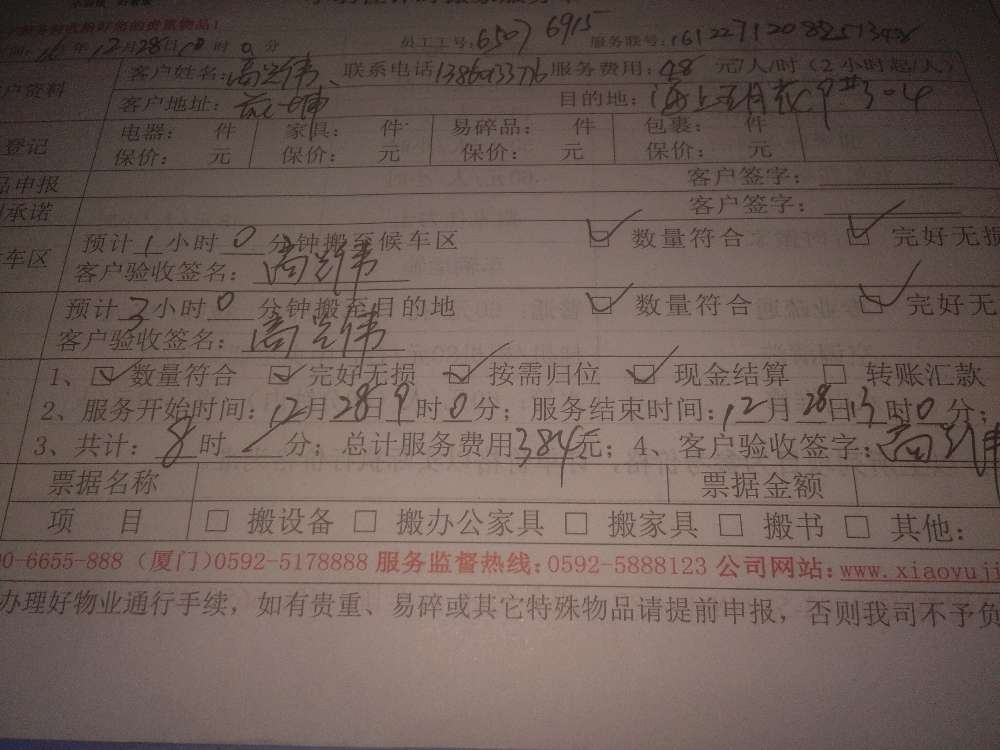 年12月28日10时0分 员工工号:6507 6915 服务联号:
户资料 客户姓名: 联系电话 服务费用:48 元/人/时(2小时起/人)
客户地址: 目的地:海上五月花
登记 电器: 件 家具: 件 易碎品: 件 包裹: 件
保价: 元 保价: 元 保价: 元 保价: 元
品申报 客户签字:
承诺 客户签字:
车区 预计1小时0分钟搬至候车区 数量符合 完好无损
客户验收签名:
预计3小时0分钟搬至目的地 数量符合 完好无
客户验收签名:
1、数量符合 完好无损 按需归位 现金结算 转账汇款
2、服务开始时间:12月28日9时0分;服务结束时间:12月28日13时0分;
3、共计:8时 分;总计服务费用384元;4、客户验收签字:
票据名称 票据金额
项 目 □ 搬设备 □ 搬办公家具 □ 搬家具 □ 搬书 □ 其他:
00-6655-888 (厦门)0592-5178888 服务监督热线:0592-5888123 公司网站:www.xiaoyuji
办理好物业通行手续,如有贵重、易碎或其它特殊物品请提前申报,否则我司不予负